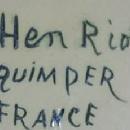 Hen Rio
QUIMPER
FRANCE